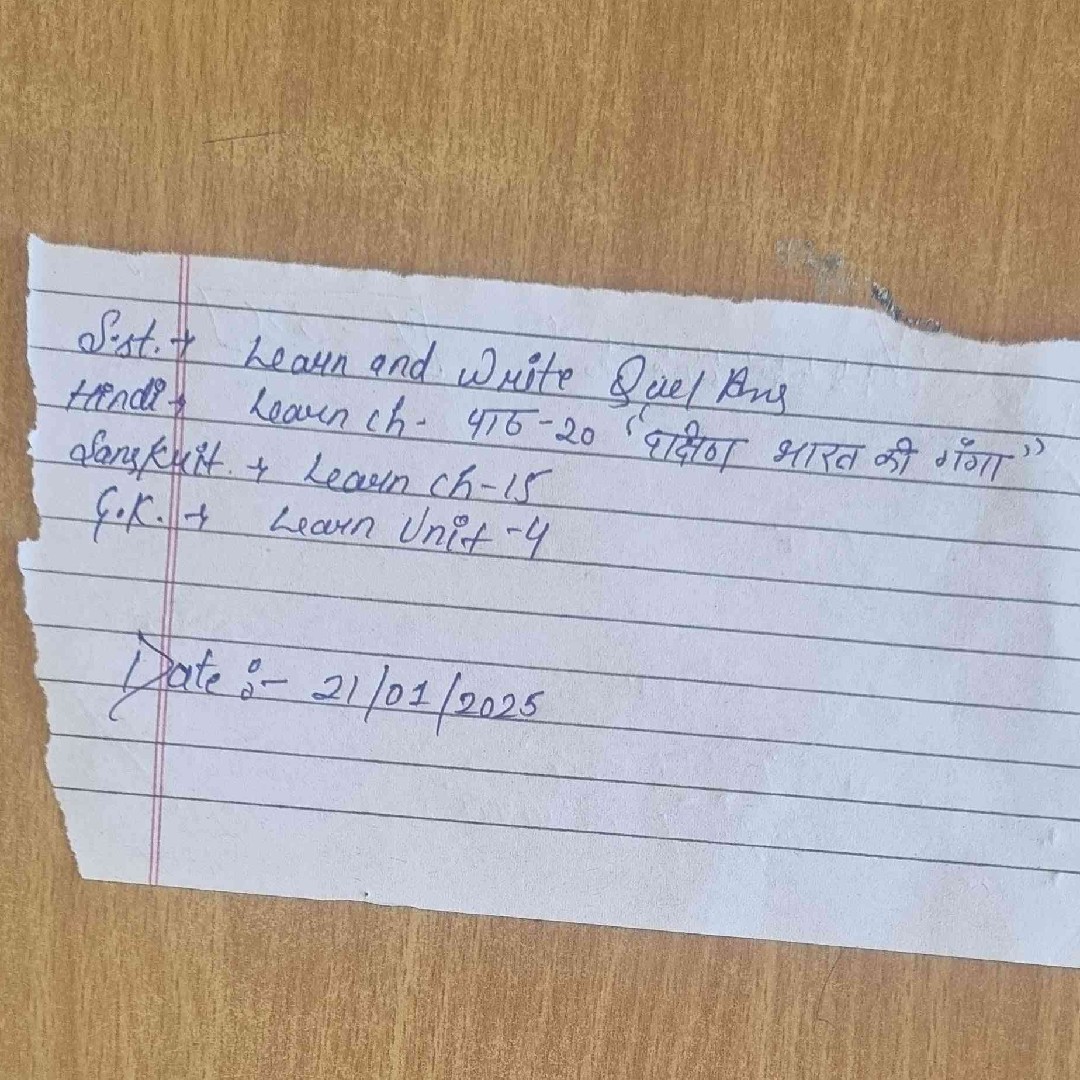 S.st. → Learn and Write Que/Ans
Hindi → Learn ch- पाठ-20 "दक्षिण भारत की गँगा"
Sanskrit. → Learn ch-15
G.K. → Learn Unit-4
Date :- 21/01/2025